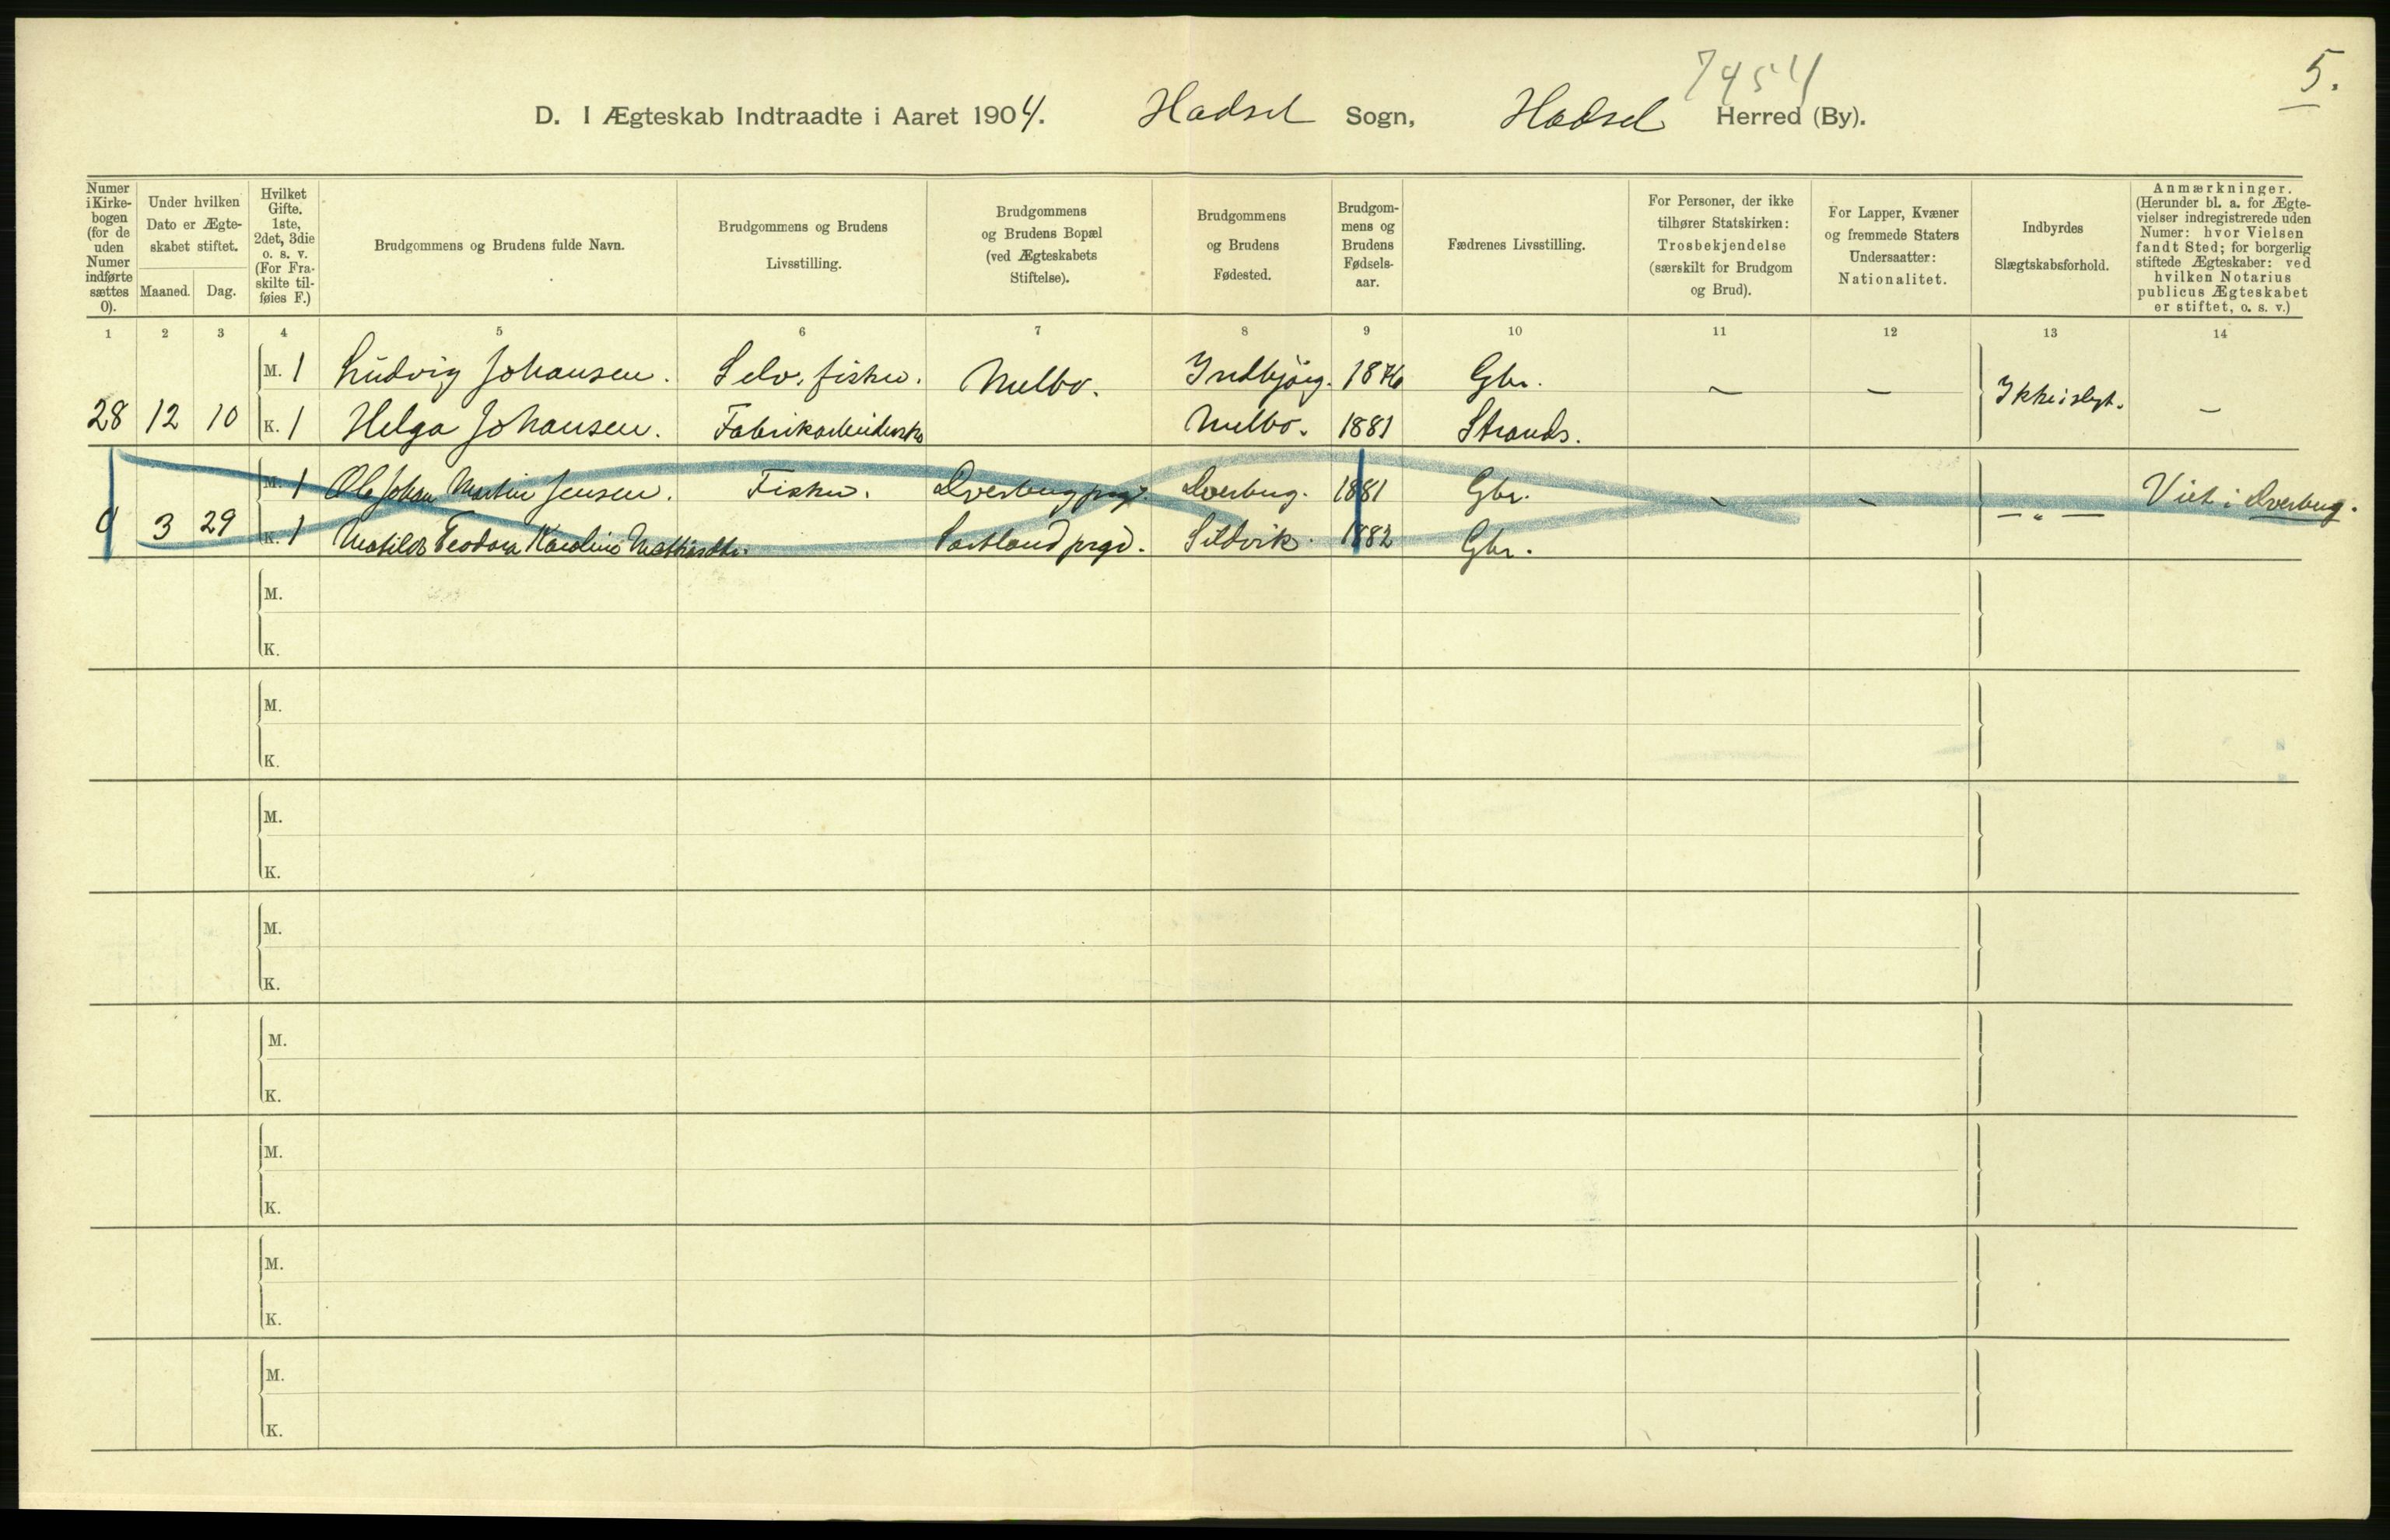 7454
5.
D. I Ægteskab Indtraadte i Aaret 1904. Hadsel Sogn, Hadsel Herred (By).
Numer i Kirke-bogen (for de uden Numer indførte sættes 0).
Under hvilken Dato er Ægte-skabet stiftet.
Maaned. Dag.
Hvilket Gifte. 1ste, 2det, 3die o. s. v. (For Fra-skilte til-føies F.)
Brudgommens og Brudens fulde Navn.
Brudgommens og Brudens Livsstilling.
Brudgommens og Brudens Bopæl (ved Ægteskabets Stiftelse).
Brudgommens og Brudens Fødested.
Brudgom-mens og Brudens Fødsels-aar.
Fædrenes Livsstilling.
For Personer, der ikke tilhører Statskirken: Trosbekjendelse (særskilt for Brudgom og Brud).
For Lapper, Kvæner og fremmede Staters Undersaatter: Nationalitet.
Indbyrdes Slægtskabsforhold.
Anmærkninger. (Herunder bl. a. for Ægte-vielser indregistrerede uden Numer: hvor Vielsen fandt Sted; for borgerlig stiftede Ægteskaber: ved hvilken Notarius publicus Ægteskabet er stiftet, o. s. v.)
1 2 3 4 5 6 7 8 9 10 11 12 13 14
M. 1 Ludvig Johansen. Selv. fisker. Melbo. Indbjörg. 1876 Gbr. – – Ikke i slegt. –
28 12 10 K. 1 Helga Johansen. Fabrikarbeiderske Melbo. 1881 Strands.
M. 1 Ole Johan Martin Jensen. Fisker. Dverberg prgd. Dverberg. 1881 Gbr. – – – " – Viet i Dverberg.
0 3 29 K. 1 Matilde Teodora Karoline Sortland prgd. Sildvik. 1882 Gbr.
M.
K.
M.
K.
M.
K.
M.
K.
M.
K.
M.
K.
M.
K.
M.
K.